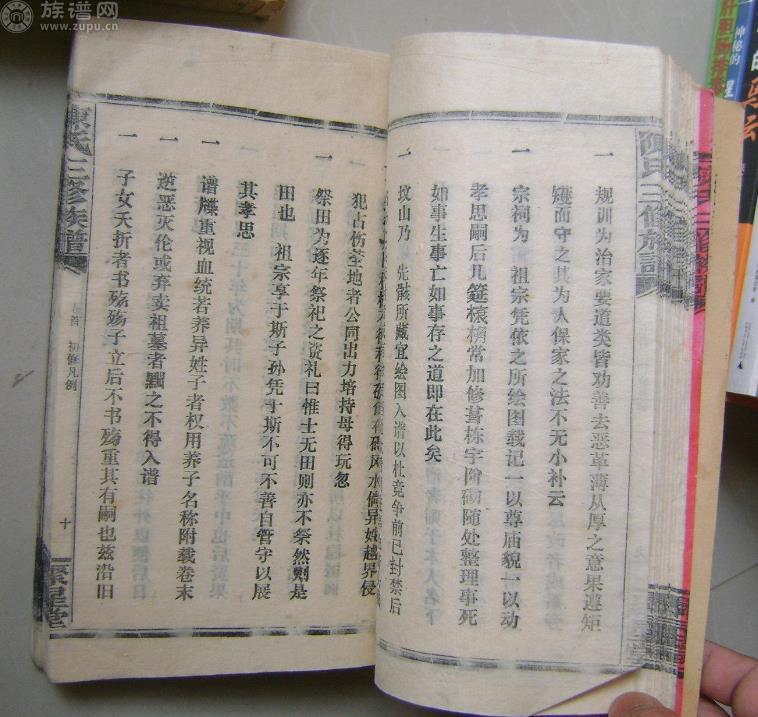 一 规训为治家要道类皆劝善去恶革薄从厚之意果遵矩
矱而守之其为人保家之法不无小补云
一 宗祠为 祖宗凭依之所绘图载记一以尊庙貌一以动
孝思嗣后几筵榱桷常加修葺栋宇阶砌随处整理事死
如事生事亡如事存之道即在此矣
一 坟山乃 先骸所藏宜绘图入谱以杜竞争前已封禁后
风水倘异姓越界侵
犯古伤茔地者公同出力培持毋得玩忽
一 祭田为逐年祭祀之资礼曰惟士无田则亦不祭然则是
田也 祖宗享于斯子孙凭于斯不可不善自管守以展
其孝思
一 谱牒重视血统若养异姓子者权用养子名称附载卷末
一 逆恶灭伦或弃卖祖墓者黜之不得入谱
一 子女夭折者书殇殇子立后不书殇重其有嗣也兹沿旧
陳氏三修族谱
卷首 初修凡例
十
聚星堂
陳氏三修族譜
族谱网
www.zupu.cn
神秘的